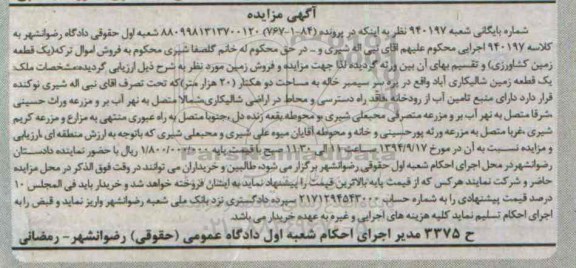 آگهی مزایده
شماره بایگانی شعبه ۹۴۰۱۹۷ نظر به اینکه در پرونده (۸۴-۱-۷۶۷) ۸۸۰۹۹۸۱۳۱۳۷۰۰۱۲۰ شعبه اول حقوقی دادگاه رضوانشهر به
کلاسه ۹۴۰۱۹۷ اجرایی محکوم علیهم آقای نبی اله شیری و ... در حق محکوم له خانم گلصفا شیری محکوم به فروش اموال ترکه(یک قطعه
زمین کشاورزی) و تقسیم بهای آن بین ورثه گردیده لذا جهت مزایده و فروش زمین مورد نظر به شرح ذیل ارزیابی گردیده،مشخصات ملک
یک قطعه زمین شالیکاری آباد واقع در پره سر سیمبر خاله به مساحت دو هکتار (۲۰ هزار متر)که تحت تصرف آقای نبی اله شیری نوکنده
قرار دارد دارای منبع تامین آب از رودخانه ،فاقد راه دسترسی و محاط در اراضی شالیکاری،شمالا متصل به نهر آب بر و مزرعه وراث حسینی
،شرقا متصل به نهر آب بر و مزرعه متصرفی محیعلی شیری و محوطه بقعه زنده دل ،جنوبا متصل به راه عبوری منتهی به مزارع و مزرعه کریم
شیری ،غربا متصل به مزرعه ورثه پورحسینی و خانه و محوطه آقایان میوه علی شیری و محیعلی شیری که باتوجه به ارزش منطقه ای ،ارزیابی
و مزایده نسبت به آن در مورخ ۱۳۹۴/۹/۱۷ ساعت ۱۱ الی ۱۱.۳۰ صبح با قیمت پایه ۱/۸۰۰/۰۰۰/۰۰۰ ریال با حضور نماینده دادستان
رضوانشهر در محل اجرای احکام شعبه اول حقوقی رضوانشهر برگزار می شود، طالبین و خریداران می توانند در وقت فوق الذکر در محل مزایده
حاضر و شرکت نمایند هرکس که از قیمت پایه بالاترین قیمت را پیشنهاد نماید به ایشان فروخته خواهد شد و خریدار باید فی المجلس ۱۰
درصد قیمت پیشنهادی را به شماره حساب ۲۱۷۱۲۹۴۵۴۳۰۰۰ سپرده دادگستری نزد بانک ملی شعبه رضوانشهر واریز نماید و قبض را به
اجرای احکام تسلیم نماید کلیه هزینه های اجرایی و غیره به عهده خریدار می باشد.
ح ۳۳۷۵ مدیر اجرای احکام شعبه اول دادگاه عمومی (حقوقی) رضوانشهر- رمضانی